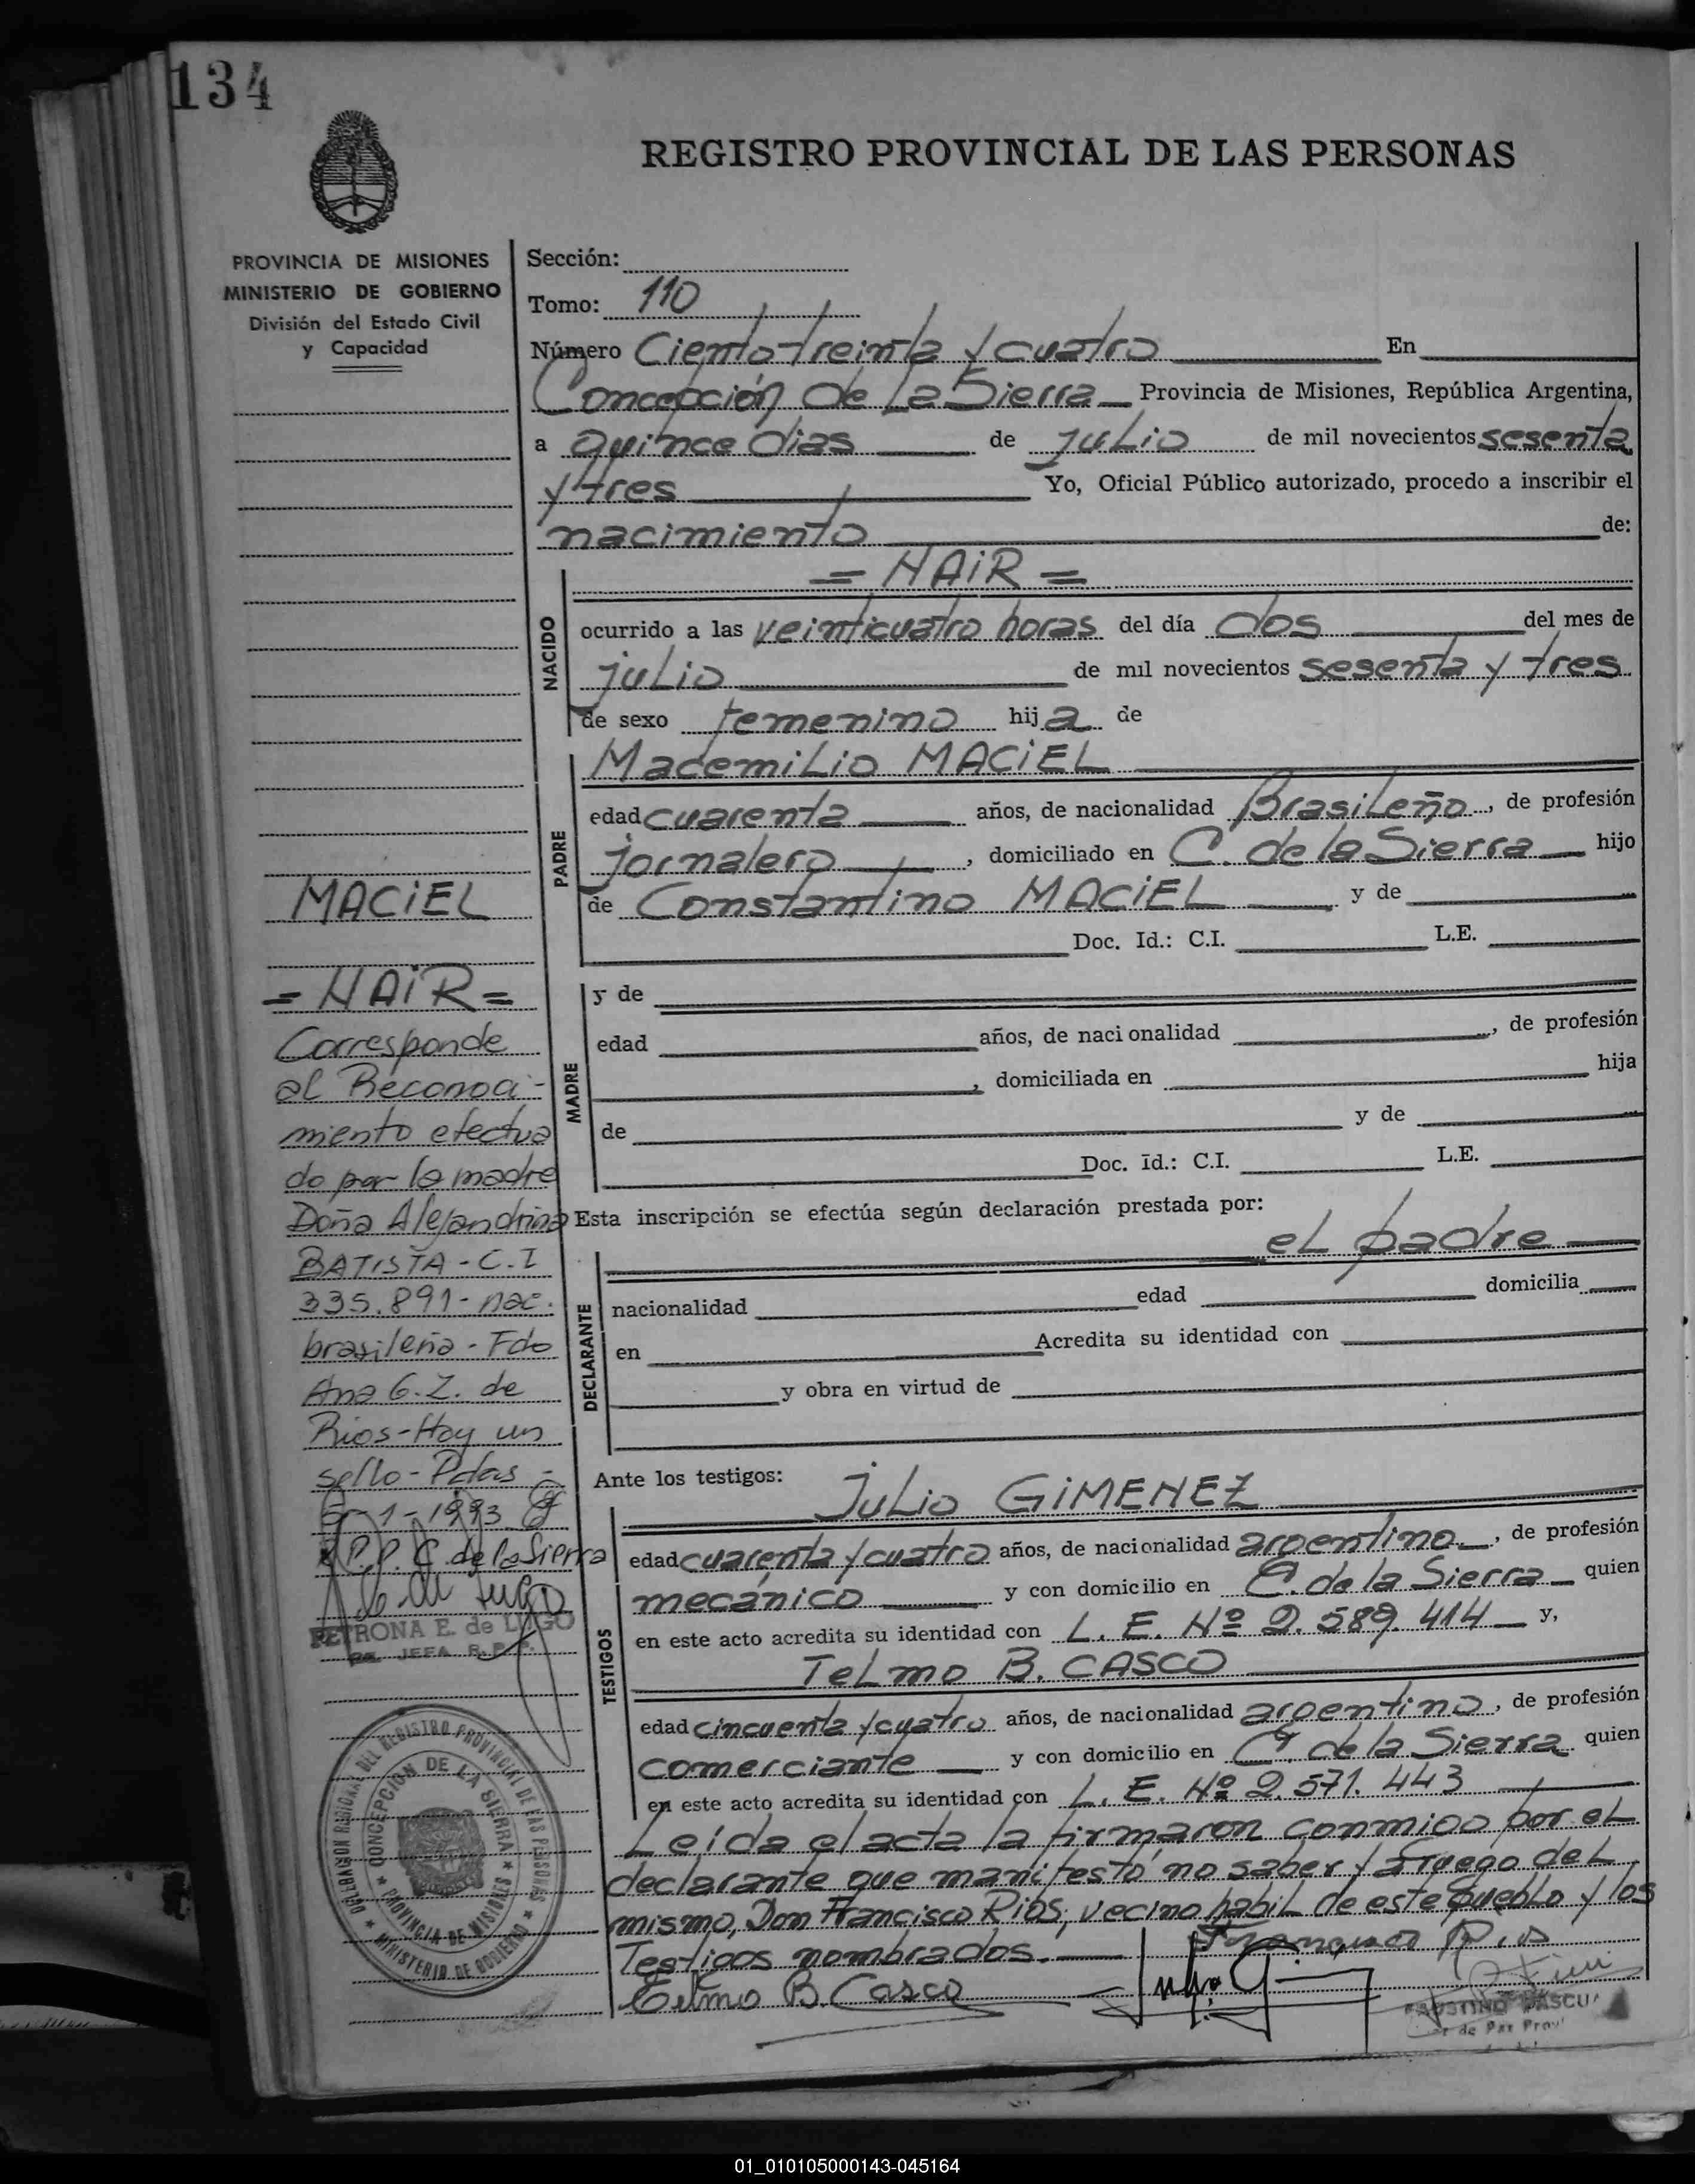 134
REGISTRO PROVINCIAL DE LAS PERSONAS
PROVINCIA DE MISIONES
MINISTERIO DE GOBIERNO
División del Estado Civil
y Capacidad
Sección:
Tomo: 110
Número Ciento treinta y cuatro En
Concepción de La Sierra Provincia de Misiones, República Argentina,
a quince dias de julio de mil novecientos sesenta
y tres Yo, Oficial Público autorizado, procedo a inscribir el
nacimiento de:
= NAiR =
NACIDO
ocurrido a las veinticuatro horas del día dos del mes de
julio de mil novecientos sesenta y tres
de sexo femenino hija de
PADRE
Macemilio MACiEL
edad cuarenta años, de nacionalidad Brasileño, de profesión
jornalero, domiciliado en C. de la Sierra hijo
de Constantino MACiEL y de
Doc. Id.: C.I. L.E.
MADRE
y de
edad años, de nacionalidad , de profesión
, domiciliada en hija
de y de
Doc. Id.: C.I. L.E.
Esta inscripción se efectúa según declaración prestada por:
el padre
DECLARANTE
nacionalidad edad domicilia
en Acredita su identidad con
y obra en virtud de
Ante los testigos: Julio GiMENEZ
TESTIGOS
edad cuarenta y cuatro años, de nacionalidad argentino, de profesión
mecánico y con domicilio en C. de la Sierra quien
en este acto acredita su identidad con L. E. Nº 2.589.414 y,
Telmo B. CASCO
edad cincuenta y cuatro años, de nacionalidad argentino, de profesión
comerciante y con domicilio en C. de la Sierra quien
en este acto acredita su identidad con L. E. Nº 2.571.443
Leída el acta la firmaron conmigo por el
declarante que manifestó no saber y a ruego del
mismo, Don Francisco Rios, vecino habil de este pueblo y los
Testigos nombrados.
Francisco Rios
Telmo B. Casco
FAUSTINO PASCU
de Paz Prov
MACiEL
= NAiR =
Corresponde
al Reconoci-
miento efectua
do por la madre
Doña Alejandrina
BATISTA - C.I
335.891 - nac.
brasileña - Fdo
Ana G. Z. de
Rios - Hay un
sello - Pdas -
5-1-1993
R.P.P. C. de la Sierra
PETRONA E. de LUGO
JEFA R.P.P.
DELEGACION REGIONAL DEL REGISTRO PROVINCIAL DE LAS PERSONAS
MINISTERIO DE GOBIERNO
CONCEPCION DE LA SIERRA
PROVINCIA DE MISIONES
01_010105000143-045164